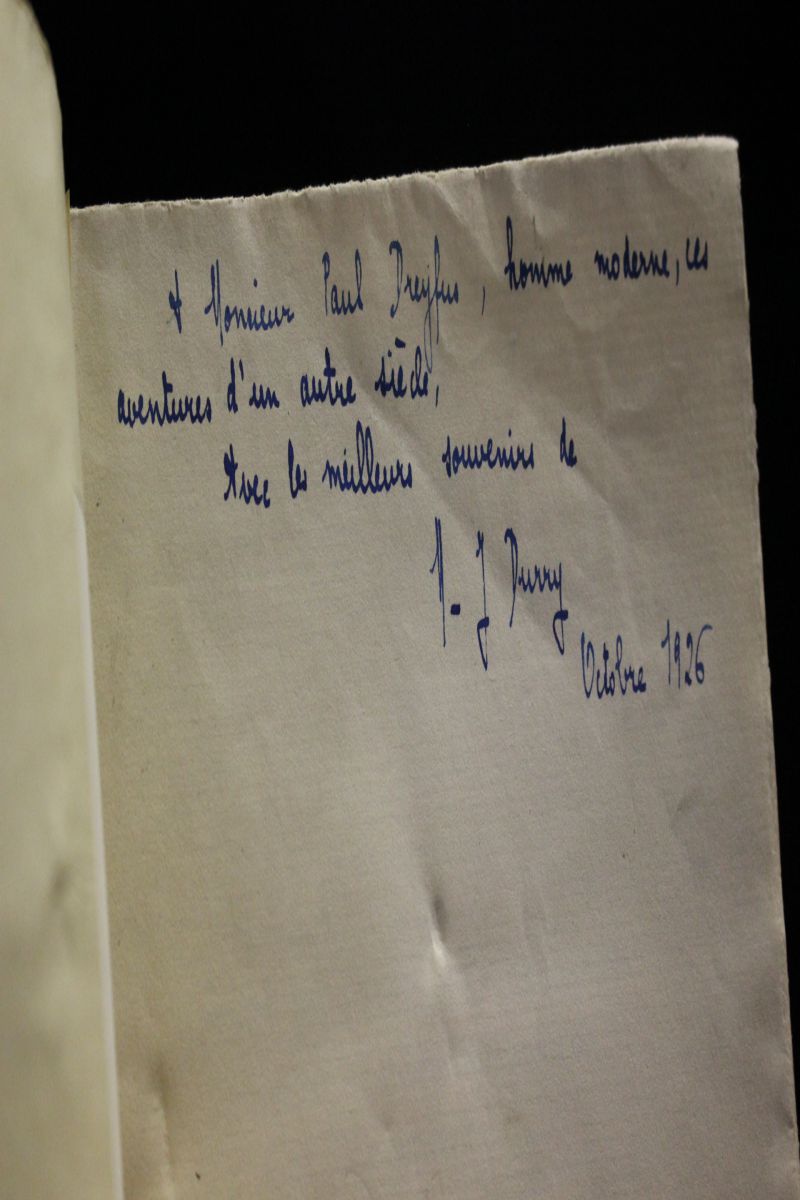 A Monsieur Paul Dreyfus, homme moderne, ces
aventures d'un autre siècle,
Avec les meilleurs souvenirs de
M-J Durry
Octobre 1926